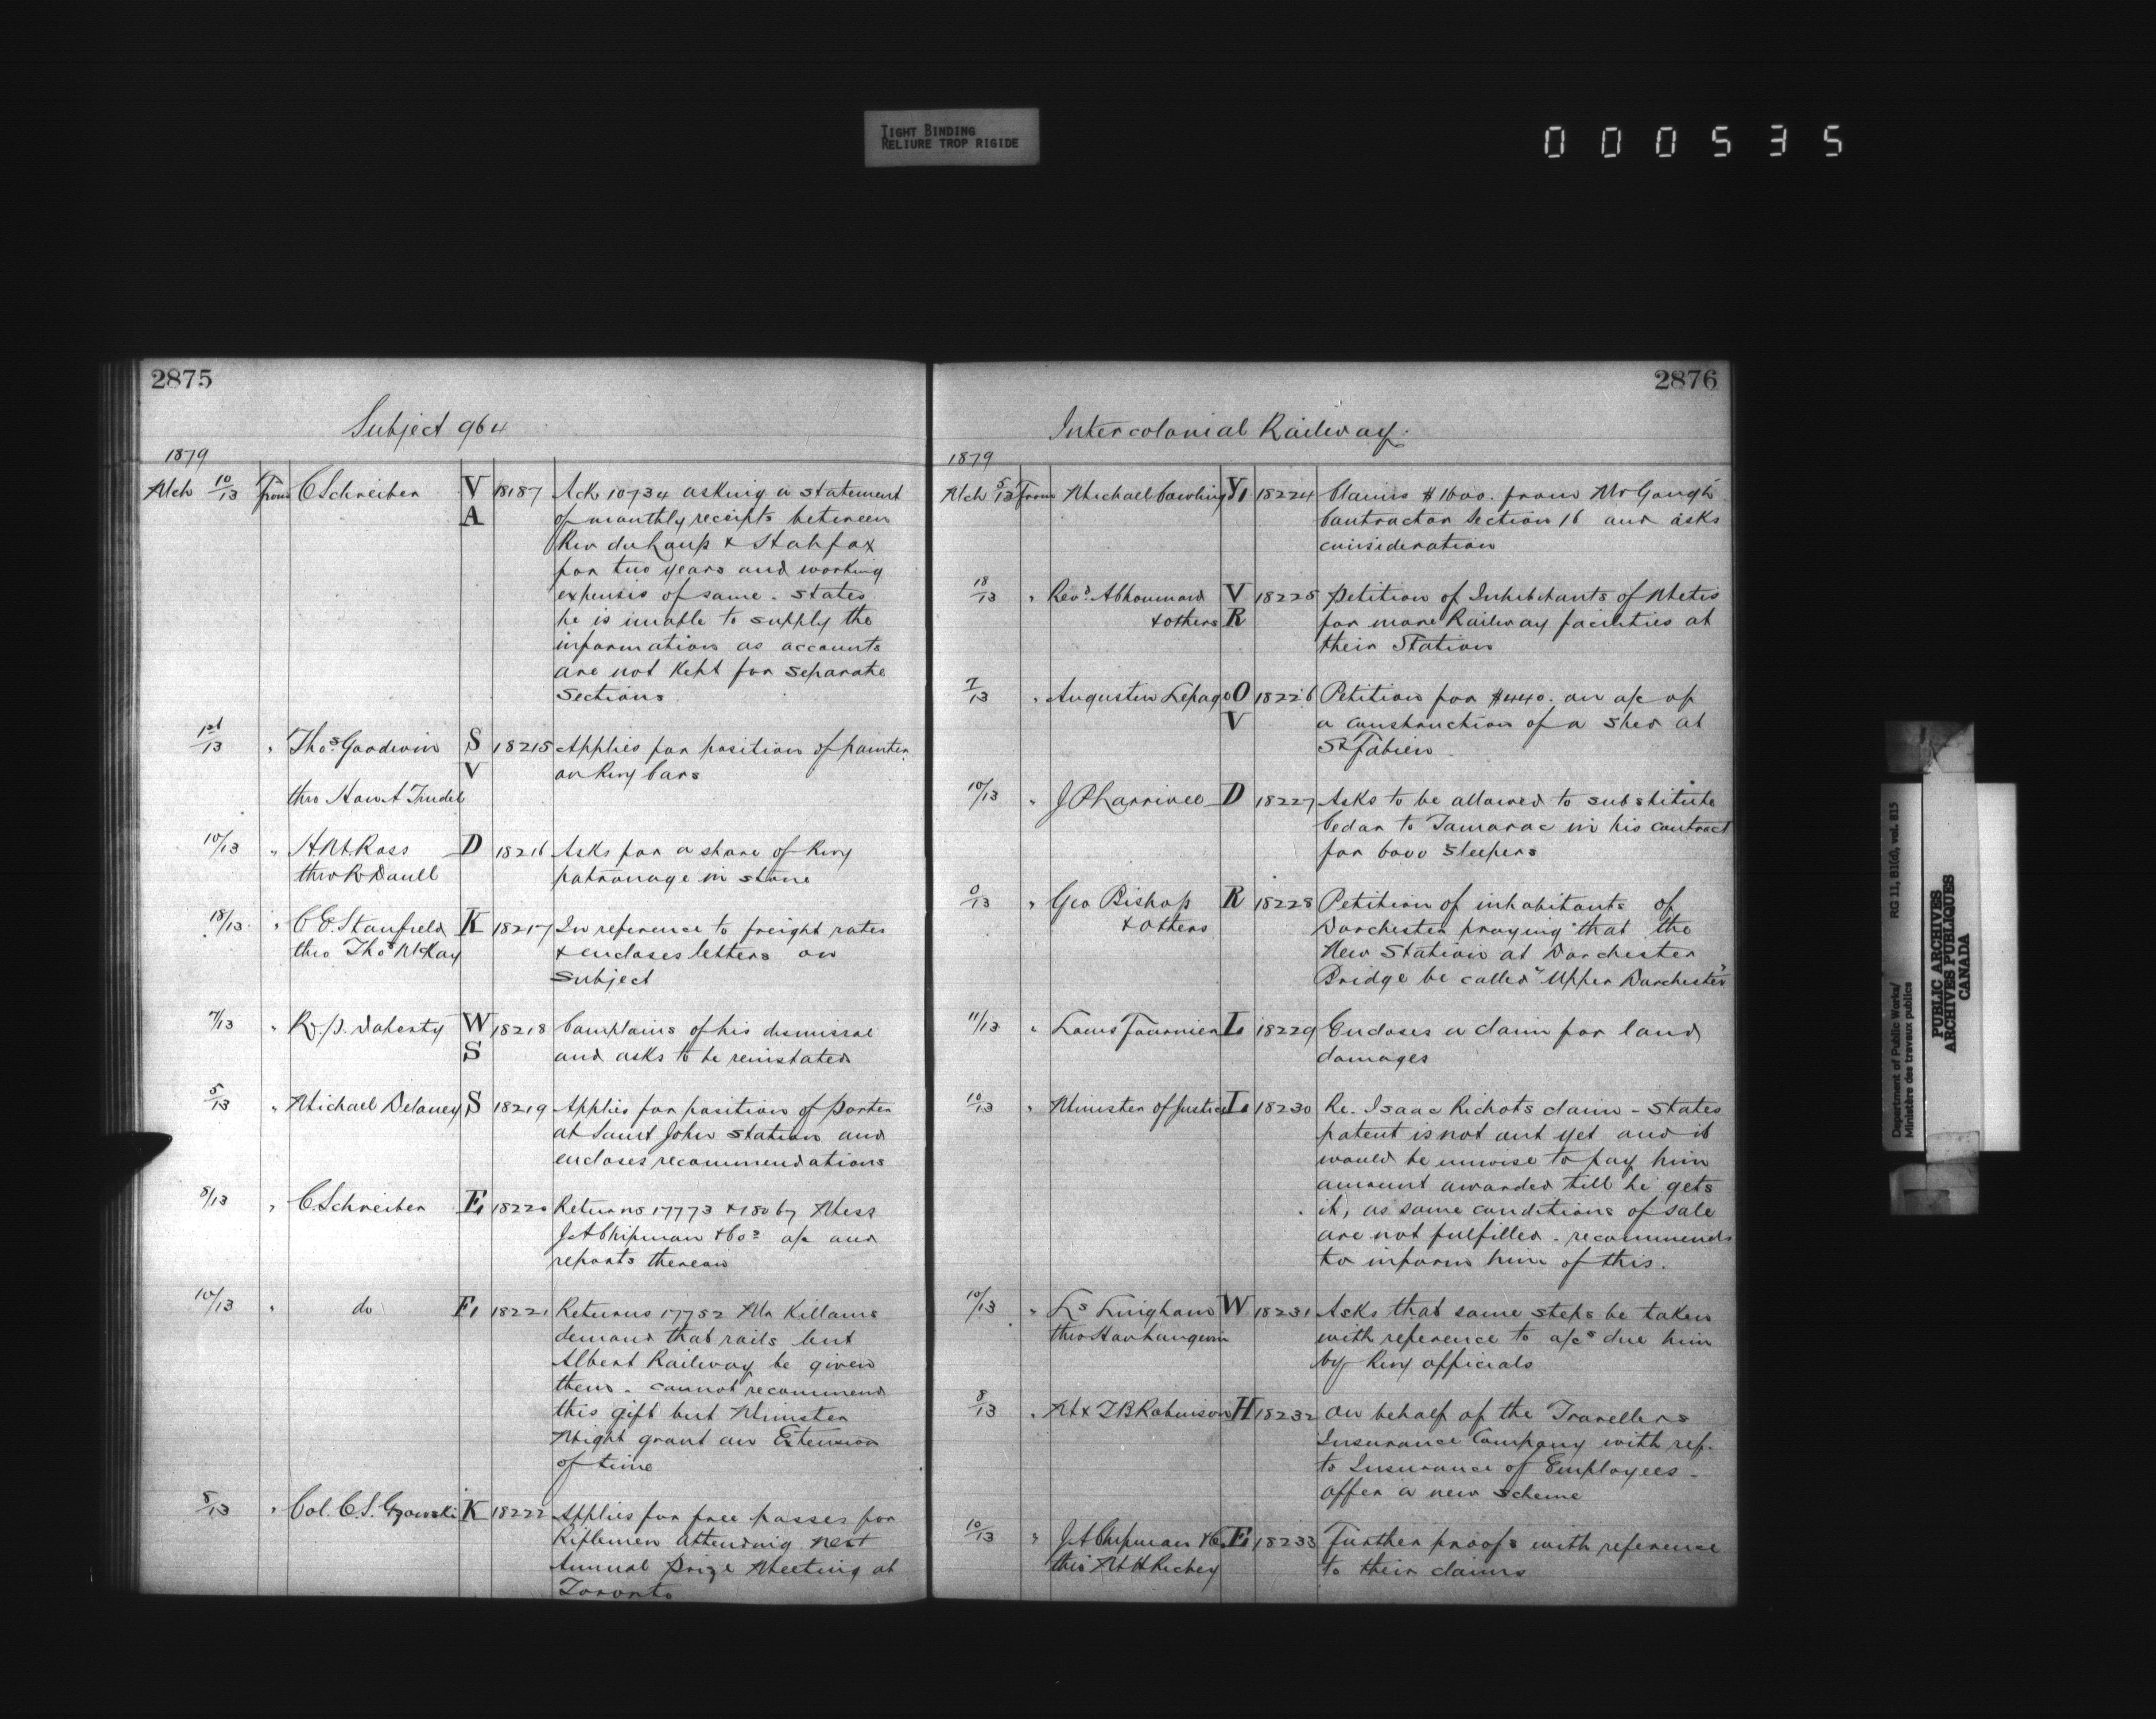 TIGHT BINDING
RELIURE TROP RIGIDE
000535
2875
Subject 964
1879
Mch 10/13 From C Schreiber V A 18187 Ack 10734 asking a statement
of monthly receipts between
Riv du Loup & Halifax
for two years and working
expenses of same - states
he is unable to supply the
information as accounts
are not kept for separate
Sections
1st/13 " Thos Goodwin S V 18215 Applies for position of painter
on Rwy Cars
thro Hon A Trudel
10/13 " H McK Ross D 18216 Asks for a share of Rwy
thro R Doull patronage in stone
18/13 " C E Stanfield K 18217 In reference to freight rates
thro Thos McKay & encloses letters on
Subject
7/13 " R. P. Doherty W S 18218 Complains of his dismissal
and asks to be reinstated
5/13 " Michael Delaney S 18219 Applies for position of Porter
at Saint John Station and
encloses recommendations
8/13 " C. Schreiber E 18220 Returns 17773 & 18067 Mess
J A Chipman & Cos a/c and
reports thereon
10/13 " do E 18221 Returns 17752 Mr Killams
demand that rails lent
Albert Railway be given
them - cannot recommend
this gift but Minister
Might grant an Extension
of time
8/13 " Col. C. S. Gzowski K 18222 Applies for free passes for
Riflemen attending next
Annual Prize Meeting at
Toronto
2876
Intercolonial Railway.
1879
Mch 5/13 From Michael Cowling Y 18224 Claims $1600. from Mr Gough
Contractor Section 16 and asks
consideration
18/13 " Revd A Chouinard V 18225 Petition of Inhabitants of Metis
& others R for more Railway facilities at
their Station
7/13 " Augustin Lepage O V 18226 Petition for $440. on a/c of
a construction of a shed at
St Fabien
10/13 " J P Larrivee D 18227 Asks to be allowed to substitute
Cedar to Tamarac in his contract
for 6000 Sleepers
/13 " Geo Bishop R 18228 Petition of inhabitants of
& others Dorchester praying that the
New Station at Dorchester
Bridge be called "Upper Dorchester"
11/13 " Louis Fournier L 18229 Encloses a claim for land
damages
10/13 " Minister of Justice L 18230 Re. Isaac Richots claim - States
patent is not out yet and it
would be unwise to pay him
amount awarded till he gets
it, as some conditions of sale
are not fulfilled - recommends
to inform him of this.
10/13 " Ls Lingham W 18231 Asks that some steps be taken
thro Hon Langevin with reference to a/cs due him
by Rwy officials
8/13 " M & T B Robinson H 18232 On behalf of the Travellers
Insurance Company with ref.
to Insurance of Employees -
offer a new scheme
10/13 " J A Chipman & Co E 18233 Further proofs with reference
thro M H Richey to their claims
Department of Public Works/ RG 11, B1(d), vol. 815
Ministère des travaux publics
PUBLIC ARCHIVES
ARCHIVES PUBLIQUES
CANADA